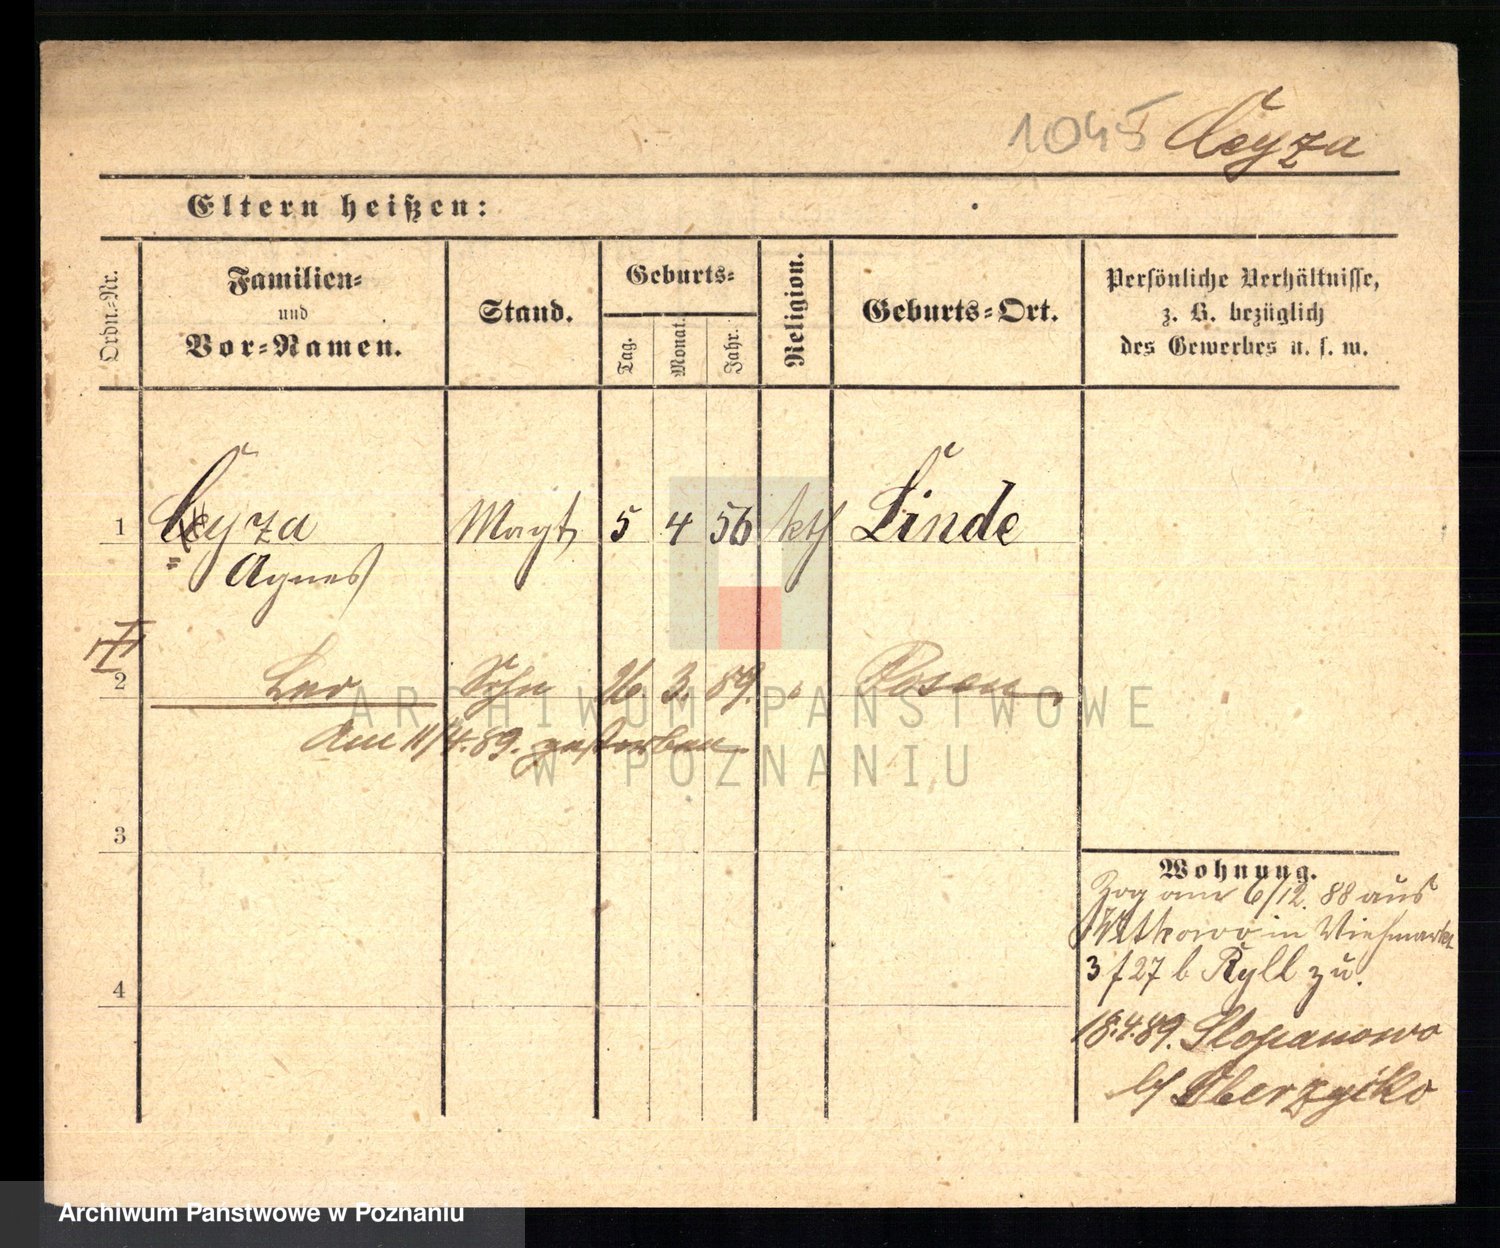 1045 Ceyza
Eltern heißen:
Ordn.-Nr.
Familien-
und
Vor-Namen.
Stand.
Geburts-
Tag.
Monat.
Jahr.
Religion.
Geburts-Ort.
Persönliche Verhältnisse,
z. B. bezüglich
des Gewerbes u. s. w.
1 Ceyza Magt 5 4 56 kth Linde
= Agnes
2 Leo Sohn 26 3. 89. Posen
Am 11/4.89. gestorben
3
4
Wohnung.
Zog am 6/12. 88 aus
Witkowo in Viehmarkt
3 f 27 b Ryll zu.
18.4.89. Slopanowo
b/ Oberzycko
ARCHIWUM PAŃSTWOWE
W POZNANIU
Archiwum Państwowe w Poznaniu